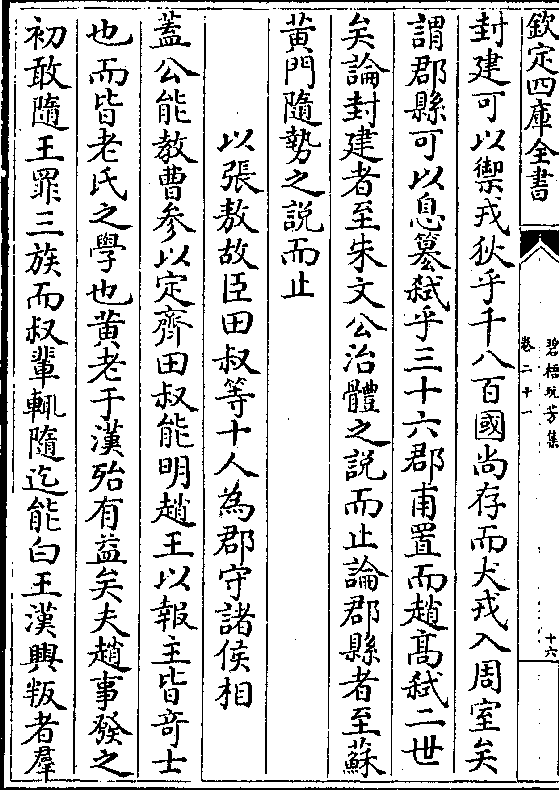 欽定四庫全書
碧梧玩芳集
卷二十一
十六
封建可以禦戎狄乎千八百國尚存而犬戎入周室矣
謂郡縣可以息簒弑乎三十六郡甫置而趙髙弑二世
矣論封建者至朱文公治體之説而止論郡縣者至蘇
黄門隨勢之説而止
以張敖故臣田叔等十人為郡守諸侯相
蓋公能教曹參以定齊田叔能明趙王以報主皆竒士
也而皆老氏之學也黄老于漢殆有益矣夫趙事發之
初敢隨王罪三族而叔輩輒隨迄能白王漢興叛者羣